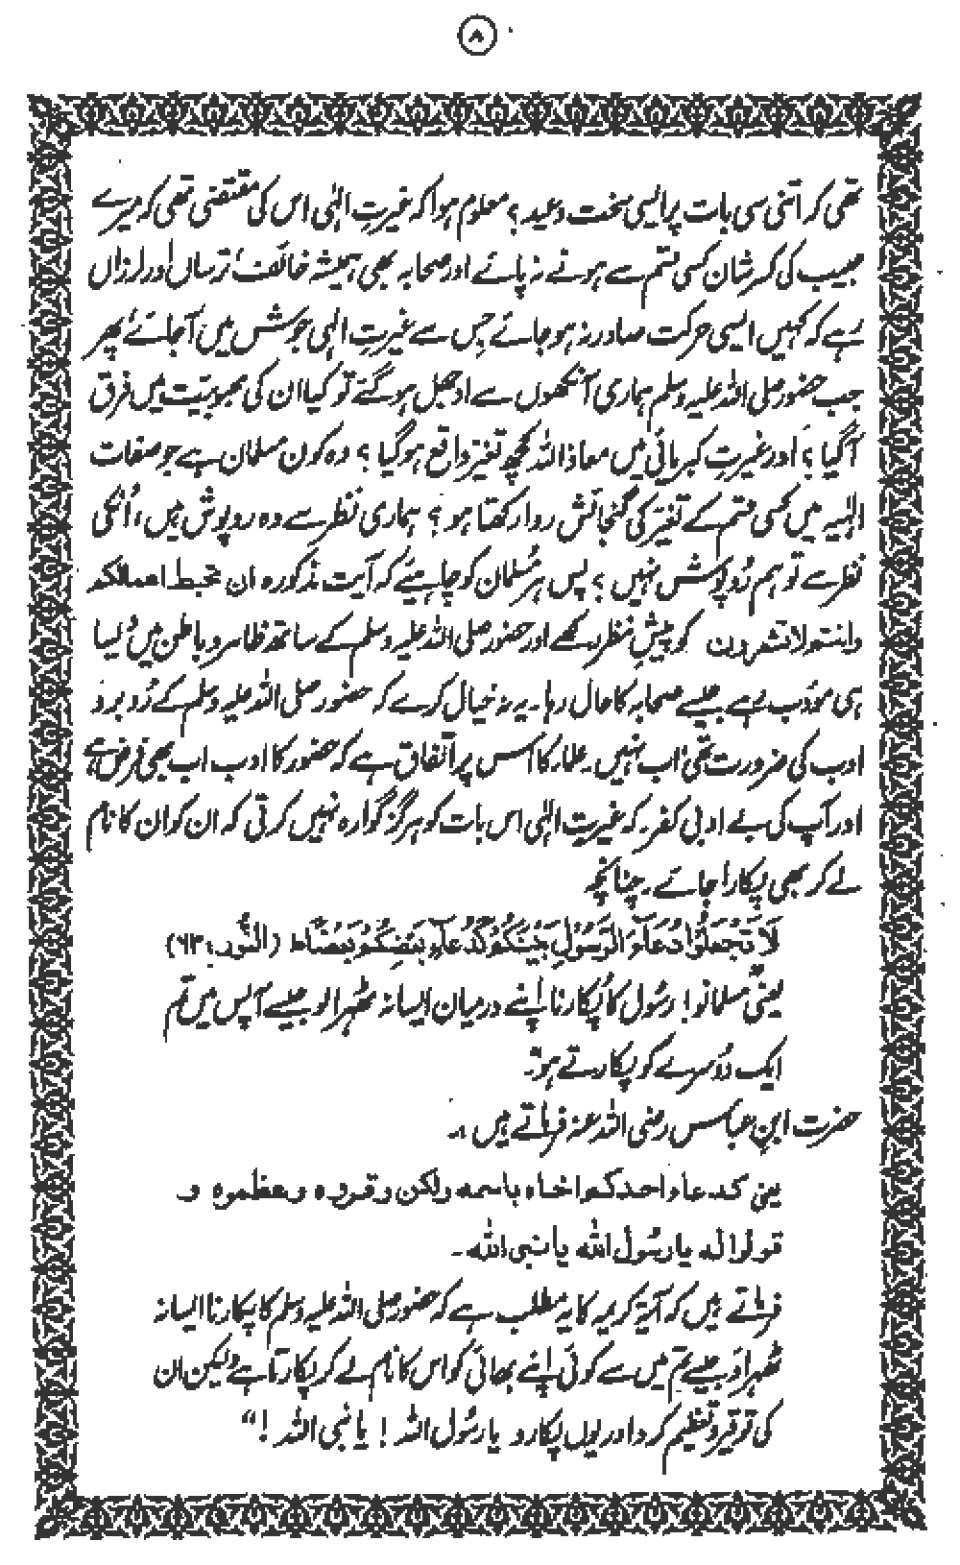 ۸
تھی کر اتنی سی بات پر ایسی سخت وعید؟ معلوم ہوا کہ غیرتِ الٰہی اس کی مقتضی تھی کہ میرے
حبیب کی کسرِ شان کسی قسم سے ہونے نہ پائے اور صحابہ بھی ہمیشہ خائف، ترساں اور لرزاں
رہے کہ کہیں ایسی حرکت صادر نہ ہو جائے جس سے غیرتِ الہی جوش میں آجائے، پھر
جب حضور صلی اللہ علیہ وسلم ہماری آنکھوں سے اوجھل ہو گئے تو کیا ان کی محبوبیّت میں فرق
آگیا؟ اور غیرتِ کبریائی میں معاذ اللہ کچھ تغیر واقع ہو گیا؟ وہ کون مسلمان ہے جو صفات
الٰہیہ میں کسی قسم کے تغیّر کی گنجائش روا رکھتا ہو؟ ہماری نظر سے وہ روپوش ہیں، اُنکی
نظر سے تو ہم رُوپوش نہیں؟ پس ہر مُسلمان کو چاہیے کہ آیت مذکورہ ان تحبط اعمالکم
وانتم لا تشعرون کو پیشِ نظر رکھے اور حضور صلی اللہ علیہ وسلم کے ساتھ ظاہر و باطن میں ویسا
ہی مؤدب رہے جیسے صحابہ کا حال رہا۔ یہ نہ خیال کرے کہ حضور صلی اللہ علیہ وسلم کے رُوبرو
ادب کی ضرورت تھی اب نہیں۔ علماء کا اس پر اتّفاق ہے کہ حضور کا ادب اب بھی فرض ہے
اور آپ کی بے ادبی کفر۔ کہ غیرتِ الٰہی اس بات کو ہرگز گوارہ نہیں کرتی کہ ان کو ان کا نام
لے کر بھی پکارا جائے۔ چنانچہ
لَا تَجْعَلُوْا دُعَآءَ الرَّسُوْلِ بَيْنَكُمْ كَدُعَآءِ بَعْضِكُمْ بَعْضًا ط (النُّور: ۶۳)
یعنی مسلمانو! رسُول کا پُکارنا اپنے درمیان ایسا نہ ٹھہرا لو جیسے آپس میں تم
ایک دُوسرے کو پکارتے ہو"۔
حضرت ابنِ عباس رضی اللہ عنہ فرماتے ہیں:۔
یعنی کدعاء احدکم اخاہ باسمہ ولکن وقروہ وعظموہ و
قولوا لہ یا رسُول اللہ یا نبی اللہ۔
فرماتے ہیں کہ آیۃ کریمہ کا یہ مطلب ہے کہ حضور صلی اللہ علیہ وسلم کا پکارنا ایسا نہ
ٹھہراؤ جیسے تم میں سے کوئی اپنے بھائی کو اس کا نام لے کر پکارتا ہے ولیکن ان
کی توقیر و تعظیم کرو اور یوں پکارو یا رسُول اللہ! یا نبی اللہ!"